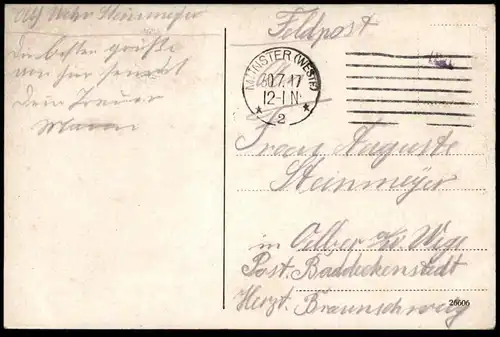 Abs. Wehr. Steinmeyer
Die besten Grüße
von hier sendet
Dein Treuer
Mann
Feldpost
MÜNSTER (WESTF)
30.7.17
12-1 N.
* 2 *
Frau Auguste
Steinmeyer
in Oelber
Post. Baddeckenstedt
Herzt. Braunschweig
26606